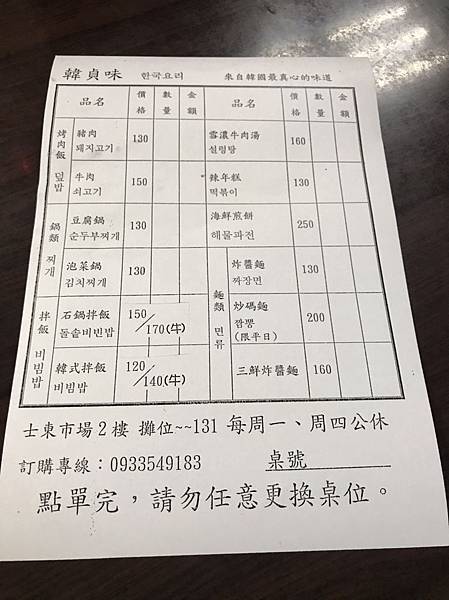 韓貞味 한국요리 來自韓國最真心的味道
品名 價格 數量 金額 品名 價格 數量 金額
烤肉飯 덮밥
豬肉 130
돼지고기
牛肉 150
쇠고기
鍋類 찌개
豆腐鍋 130
순두부찌개
泡菜鍋 130
김치찌개
拌飯 비빔밥
石鍋拌飯 150/170(牛)
돌솥비빈밥
韓式拌飯 120/140(牛)
비빔밥
雪濃牛肉湯 160
설렁탕
辣年糕 130
떡볶이
海鮮煎餅 250
해물파전
麵類 면류
炸醬麵 130
짜장면
炒碼麵 200
짬뽕
(限平日)
三鮮炸醬麵 160
士東市場2樓 攤位~~131 每周一、周四公休
訂購專線：0933549183 桌號
點單完，請勿任意更換桌位。